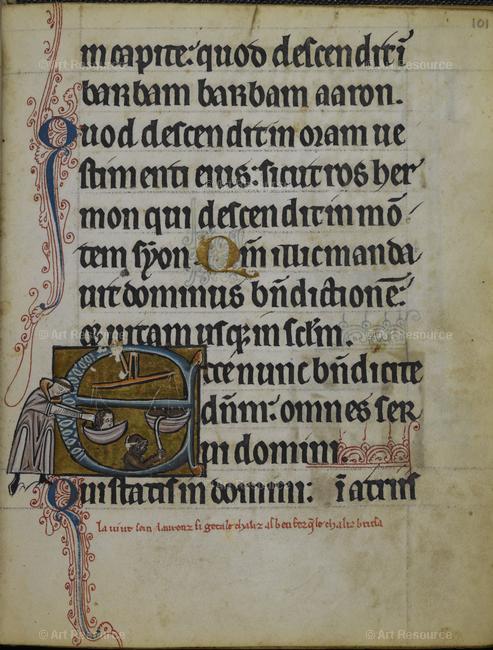 101
in capite: quod descendit ī
barbam barbam aaron.
Quod descendit in oram ue
stimenti eius: sicut ros her
mon qui descendit in mō
tem syon Qm̄ illic manda
uit dominus bn̄dictionē:
& uitam usq; in sc̄lm.
Ecce nunc bn̄dicite
dn̄m: omnes ser
ui domini.
Qui statis in domini: ī atriis
la ... sein laurenz si geta le chaliz al
© Art Resource
© Art Resource
© Art Resource
© Art Resource
© Art Resource
© Art Resource